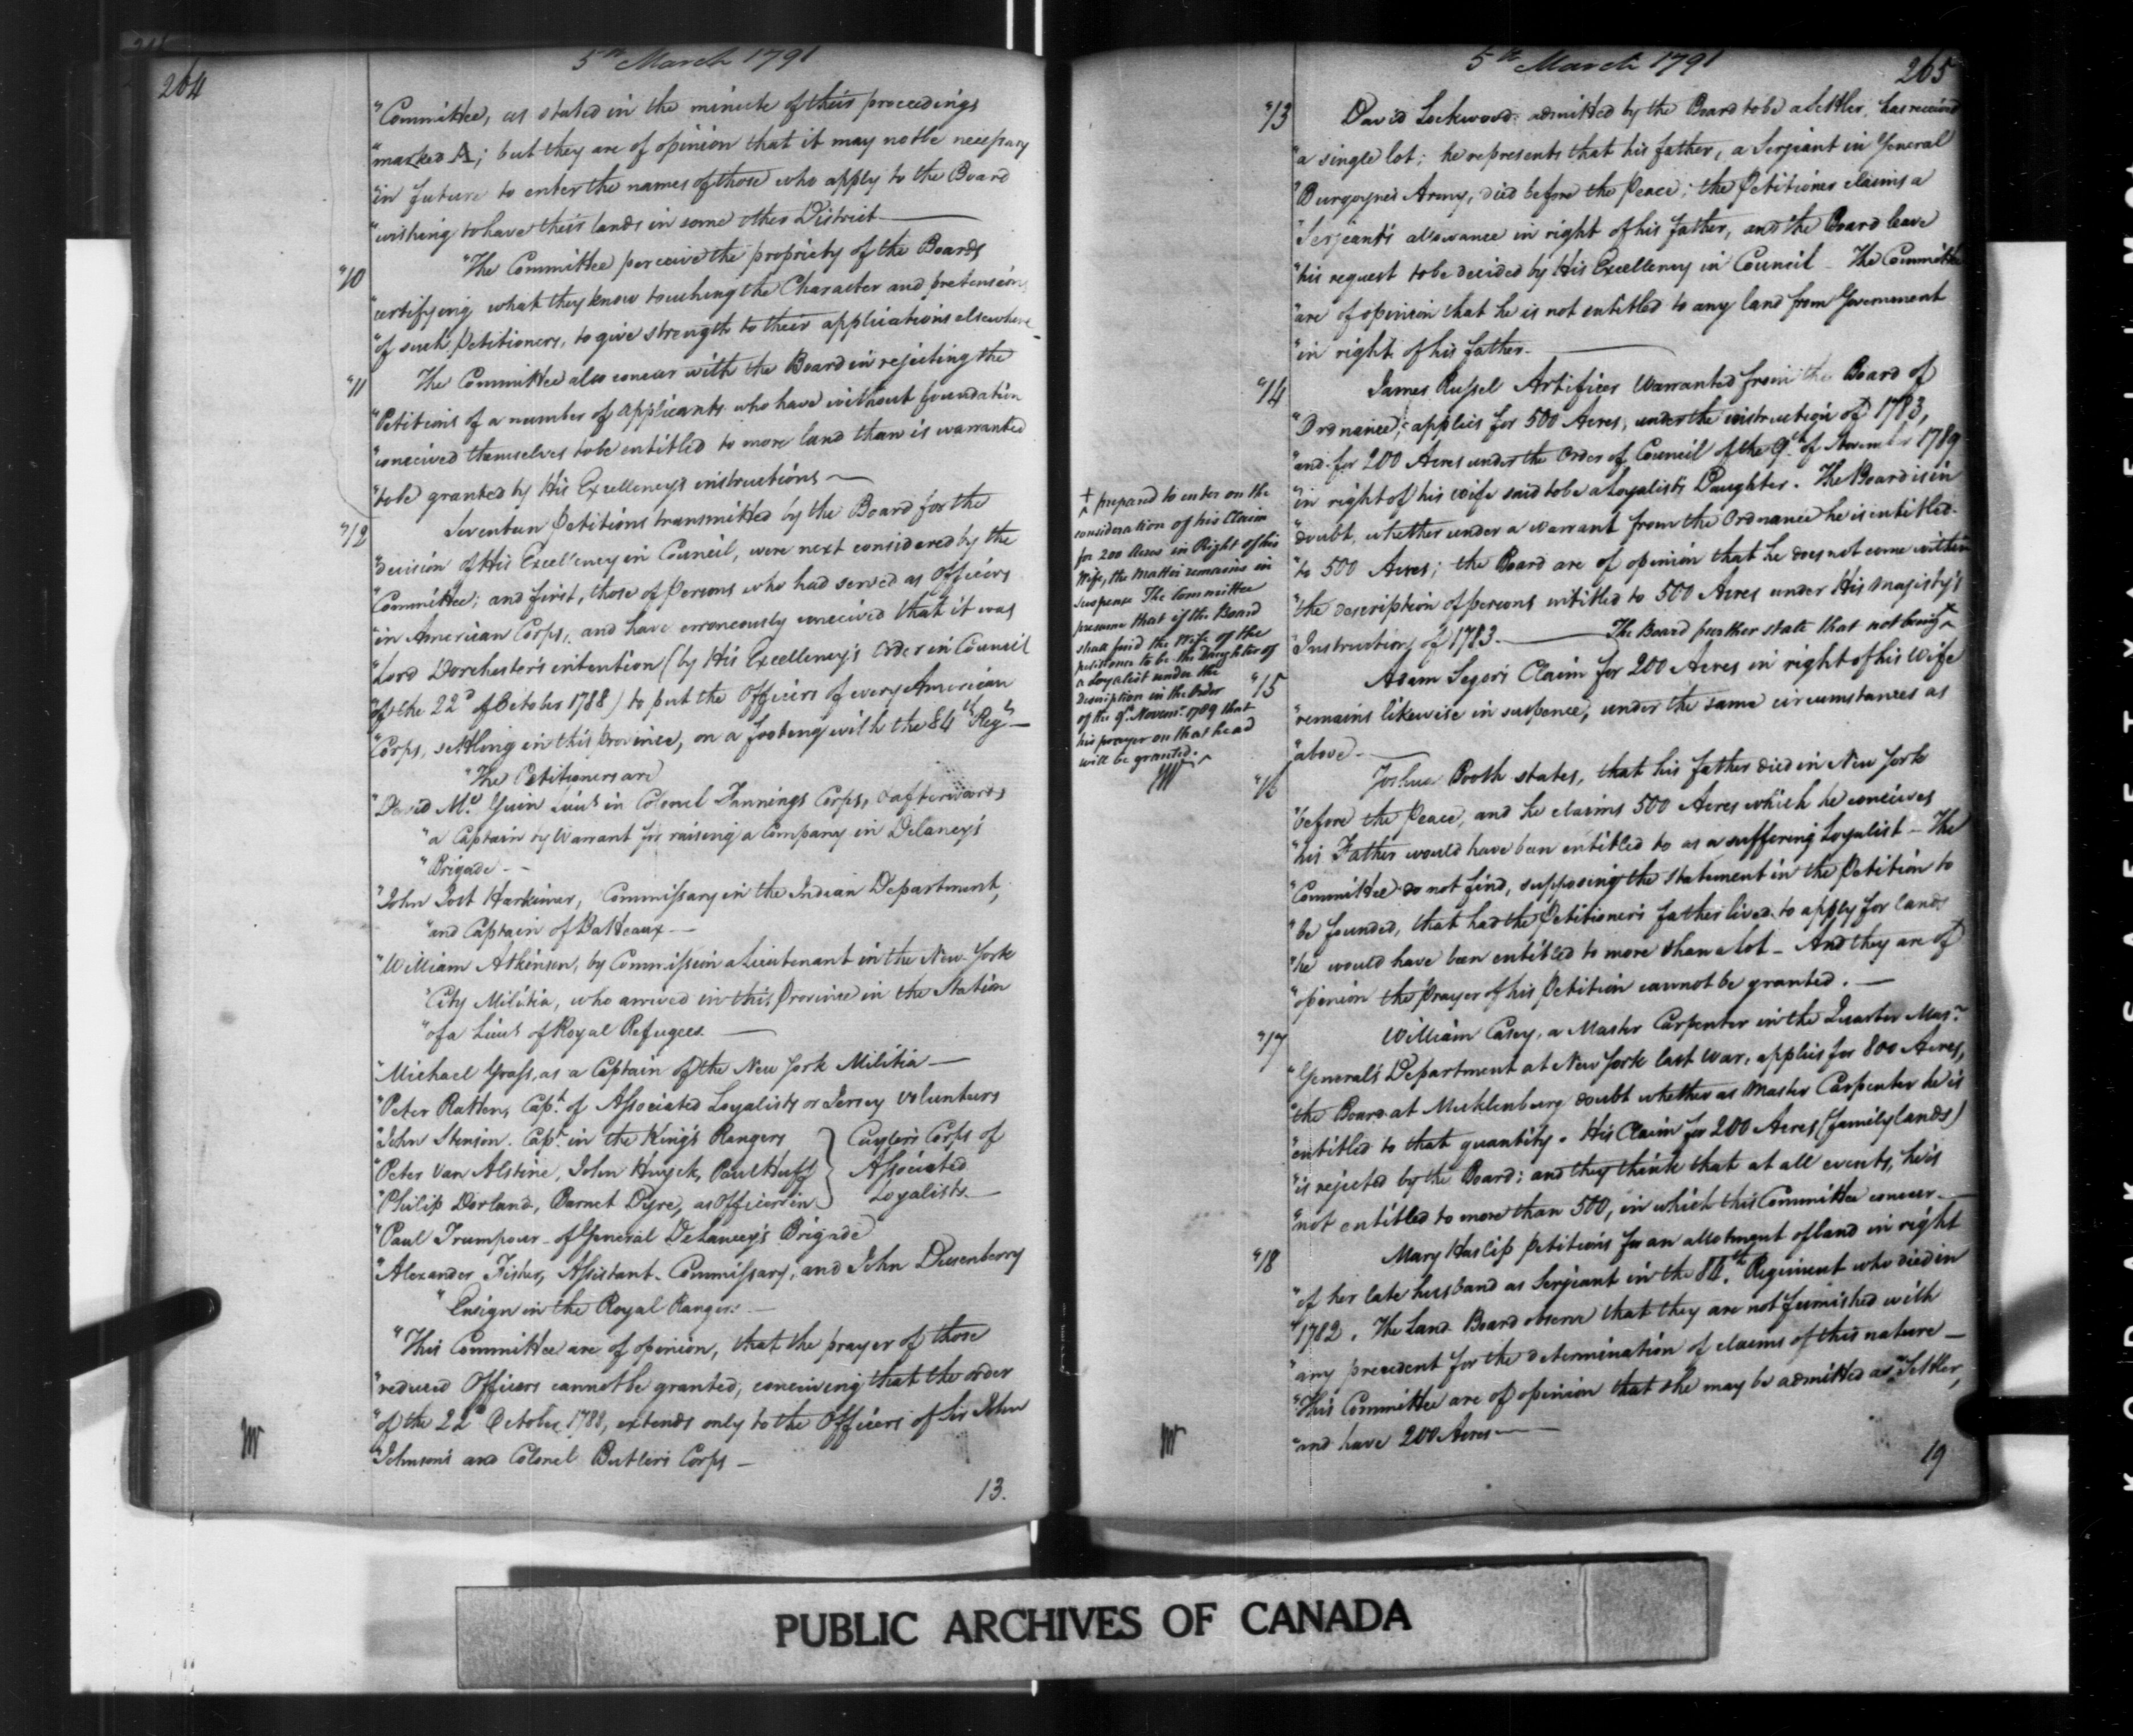 264
5th March 1791
"Committee, as stated in the minute of their proceedings
"marked A; but they are of opinion that it may not be necessary
"in future to enter the names of those who apply to the Board
"wishing to have their lands in some other District
"10 "The Committee perceive the propriety of the Boards
"certifying what they know touching the Character and pretensions
"of such Petitioners, to give strength to their applications elsewhere
"11 The Committee also concur with the Board in rejecting the
"Petitions of a number of applicants who have without foundation
"conceived themselves to be entitled to more land than is warranted
"to be granted by His Excellency's instructions
"12 Seventeen Petitions transmitted by the Board for the
"decision of His Excellency in Council, were next considered by the
"Committee; and first, those of Persons who had served as Officers
"in American Corps, and have erroneously conceived that it was
"Lord Dorchester's intention (by His Excellency's Order in Council
"of the 22d of October 1788) to put the Officers of every American
"Corps, settling in this Province, on a footing with the 84th Regt
"The Petitioners are
"David Mc Guin Lieut in Colonel Fannings Corps, & afterwards
"a Captain by Warrant for raising a Company in Delancy's
"Brigade
"John Jost Harkimer, Commissary in the Indian Department,
"and Captain of Batteaux
"William Atkinson, by Commission a Lieutenant in the New York
"City Militia, who arrived in this Province in the Station
"of a Lieut of Royal Refugees.
"Michael Grass, as a Captain of the New York Militia
"Peter Ratten, Capt of Associated Loyalists or Jersey Volunteers
"John Stinson. Capt in the King's Rangers
"Peter Van Alstine, John Huyck, Paul Huff
"Philip Dorland, Barnet Dyre, as Officers in
Cuyler's Corps of
Associated
Loyalists.
"Paul Trumpour of General DeLancey's Brigade
"Alexander Fisher, Assistant Commissary, and John Dusenberry
"Ensign in the Royal Rangers.
"This Committee are of opinion, that the prayer of those
"reduced Officers cannot be granted, conceiving that the order
"of the 22d October 1788, extends only to the Officers of Sir John
"Johnson's and Colonel Butler's Corps
13.
5th March 1791
265
"13 David Lockwood admitted by the Board to be a Settler, has received
"a single lot; he represents that his father, a Serjeant in General
"Burgoynes Army, died before the Peace; the Petitioner claims a
"Serjeant's allowance in right of his father, and the Board leave
"his request to be decided by His Excellency in Council The Committee
"are of opinion that he is not entitled to any land from Government
"in right of his father.
"14 James Russel Artificer Warranted from the Board of
"Ordnance; applies for 500 Acres, under the instruction of 1783,
"and for 200 Acres under the Order of Council of the 9th of November 1789
"in right of his wife said to be a Loyalist's Daughter. The Board is in
"doubt, whether under a warrant from the Ordnance he is entitled
"to 500 Acres; the Board are of opinion that he does not come within
"the description of persons entitled to 500 Acres under His Majesty's
"Instructions of 1783. The Board further state that not being
+ prepared to enter on the
consideration of his Claim
for 200 Acres in Right of his
Wife, the Matter remains in
suspense The Committee
presume that if the Board
shall find the Wife of the
petitioner to be the Daughter of
a Loyalist under the
description in the Order
of the 9th Novemr 1789 that
his prayer on that head
will be granted.
"15 Adam Segors Claim for 200 Acres in right of his Wife
"remains likewise in suspence, under the same circumstances as
"above
"16 Joshua Booth states, that his father died in New York
"before the Peace, and he claims 500 Acres which he conceives
"his Father would have been entitled to as a suffering Loyalist The
"Committee do not find, supposing the statement in the Petition to
"be founded, that had the Petitioner's father lived to apply for lands
"he would have been entitled to more than a lot And they are of
"opinion the prayer of his Petition cannot be granted.
"17 William Casey, a Master Carpenter in the Quarter Masr
"General's Department at New York last war, applies for 800 Acres,
"the Board at Mecklenburg doubt whether as Master Carpenter he is
"entitled to that quantity. His Claim for 200 Acres (family lands)
"is rejected by the Board; and they think that at all events, he is
"not entitled to more than 500, in which this Committee concur
"18 Mary Haslip Petitions for an allotment of land in right
"of her late husband as Serjeant in the 84th Regiment who died in
"1782. The Land Board observe that they are not furnished with
"any precedent for the determination of claims of this nature
"This Committee are of opinion that she may be admitted as Settler,
"and have 200 Acres
19
PUBLIC ARCHIVES OF CANADA